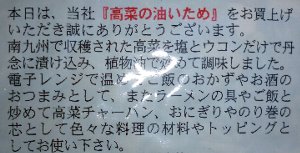 本日は、当社『高菜の油いため』をお買上げ
いただき誠にありがとうございます。
南九州で収穫された高菜を塩とウコンだけで丹
念に漬け込み、植物油で炒めて調味しました。
電子レンジで温めてご飯のおかずやお酒の
おつまみとして、またラーメンの具やご飯と
炒めて高菜チャーハン、おにぎりやのり巻の
芯として色々な料理の材料やトッピングと
してお使い下さい。